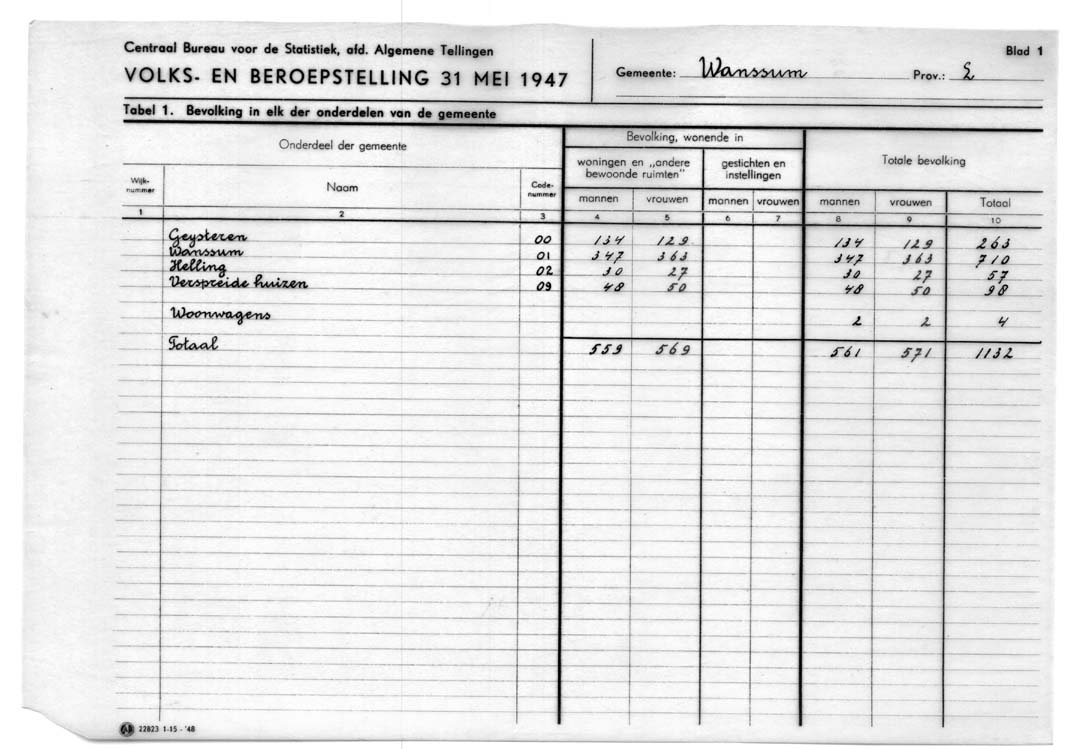 Centraal Bureau voor de Statistiek, afd. Algemene Tellingen
VOLKS- EN BEROEPSTELLING 31 MEI 1947
Gemeente: Wanssum Prov.: L
Blad 1
Tabel 1. Bevolking in elk der onderdelen van de gemeente
Onderdeel der gemeente
Bevolking, wonende in
Totale bevolking
woningen en „andere bewoonde ruimten"
gestichten en instellingen
Wijk-nummer Naam Code-nummer mannen vrouwen mannen vrouwen mannen vrouwen Totaal
1 2 3 4 5 6 7 8 9 10
Geysteren 00 134 129 134 129 263
Wanssum 01 347 363 347 363 710
Helling 02 30 27 30 27 57
Verspreide huizen 09 48 50 48 50 98
Woonwagens 2 2 4
Totaal 559 569 561 571 1132
22823 1-15-'48